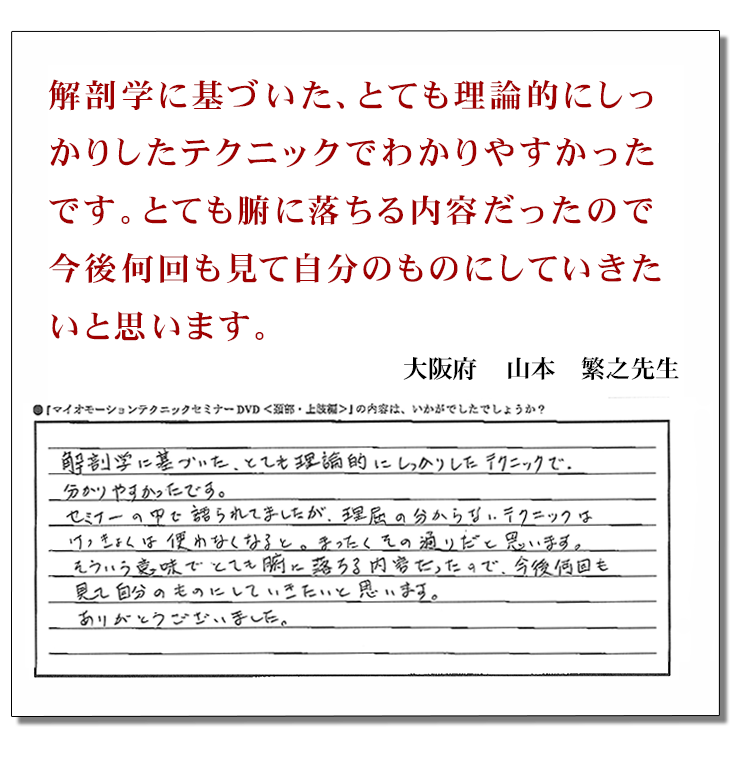 解剖学に基づいた、とても理論的にしっ
かりしたテクニックでわかりやすかった
です。とても腑に落ちる内容だったので
今後何回も見て自分のものにしていきた
いと思います。
大阪府　山本　繁之先生
●『マイオモーションテクニックセミナーDVD＜頚部・上肢編＞』の内容は、いかがでしたでしょうか？
解剖学に基づいた、とても理論的にしっかりしたテクニックで、
分かりやすかったです。
セミナーの中で語られてましたが、理屈の分からないテクニックは
けっきょくは使わなくなると。まったくその通りだと思います。
そういう意味でとても腑に落ちる内容だったので、今後何回も
見て自分のものにしていきたいと思います。
ありがとうございました。